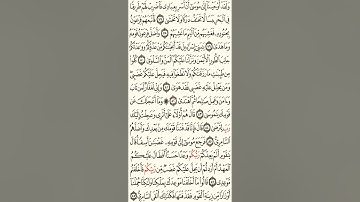 وَلَقَدْ أَوْحَيْنَآ إِلَىٰ مُوسَىٰٓ أَنْ أَسْرِ بِعِبَادِى فَٱضْرِبْ لَهُمْ طَرِيقًا
فِى ٱلْبَحْرِ يَبَسًا لَّا تَخَٰفُ دَرَكًا وَلَا تَخْشَىٰ ٧٧ فَأَتْبَعَهُمْ فِرْعَوْنُ
بِجُنُودِهِۦ فَغَشِيَهُم مِّنَ ٱلْيَمِّ مَا غَشِيَهُمْ ٧٨ وَأَضَلَّ فِرْعَوْنُ قَوْمَهُۥ
وَمَا هَدَىٰ ٧٩ يَٰبَنِىٓ إِسْرَٰٓءِيلَ قَدْ أَنجَيْنَٰكُم مِّنْ عَدُوِّكُمْ وَوَٰعَدْنَٰكُمْ
جَانِبَ ٱلطُّورِ ٱلْأَيْمَنَ وَنَزَّلْنَا عَلَيْكُمُ ٱلْمَنَّ وَٱلسَّلْوَىٰ ٨٠ كُلُوا۟
مِن طَيِّبَٰتِ مَا رَزَقْنَٰكُمْ وَلَا تَطْغَوْا۟ فِيهِ فَيَحِلَّ عَلَيْكُمْ غَضَبِى
وَمَن يَحْلِلْ عَلَيْهِ غَضَبِى فَقَدْ هَوَىٰ ٨١ وَإِنِّى لَغَفَّارٌ لِّمَن تَابَ
وَءَامَنَ وَعَمِلَ صَٰلِحًا ثُمَّ ٱهْتَدَىٰ ٨٢ ۞ وَمَآ أَعْجَلَكَ عَن
قَوْمِكَ يَٰمُوسَىٰ ٨٣ قَالَ هُمْ أُو۟لَآءِ عَلَىٰٓ أَثَرِى وَعَجِلْتُ إِلَيْكَ
رَبِّ لِتَرْضَىٰ ٨٤ قَالَ فَإِنَّا قَدْ فَتَنَّا قَوْمَكَ مِنۢ بَعْدِكَ وَأَضَلَّهُمُ
ٱلسَّامِرِىُّ ٨٥ فَرَجَعَ مُوسَىٰٓ إِلَىٰ قَوْمِهِۦ غَضْبَٰنَ أَسِفًا قَالَ
يَٰقَوْمِ أَلَمْ يَعِدْكُمْ رَبُّكُمْ وَعْدًا حَسَنًا أَفَطَالَ عَلَيْكُمُ
ٱلْعَهْدُ أَمْ أَرَدتُّمْ أَن يَحِلَّ عَلَيْكُمْ غَضَبٌ مِّن رَّبِّكُمْ فَأَخْلَفْتُم
مَّوْعِدِى ٨٦ قَالُوا۟ مَآ أَخْلَفْنَا مَوْعِدَكَ بِمَلْكِنَا وَلَٰكِنَّا حُمِّلْنَآ
أَوْزَارًا مِّن زِينَةِ ٱلْقَوْمِ فَقَذَفْنَٰهَا فَكَذَٰلِكَ أَلْقَى ٱلسَّامِرِىُّ ٨٧